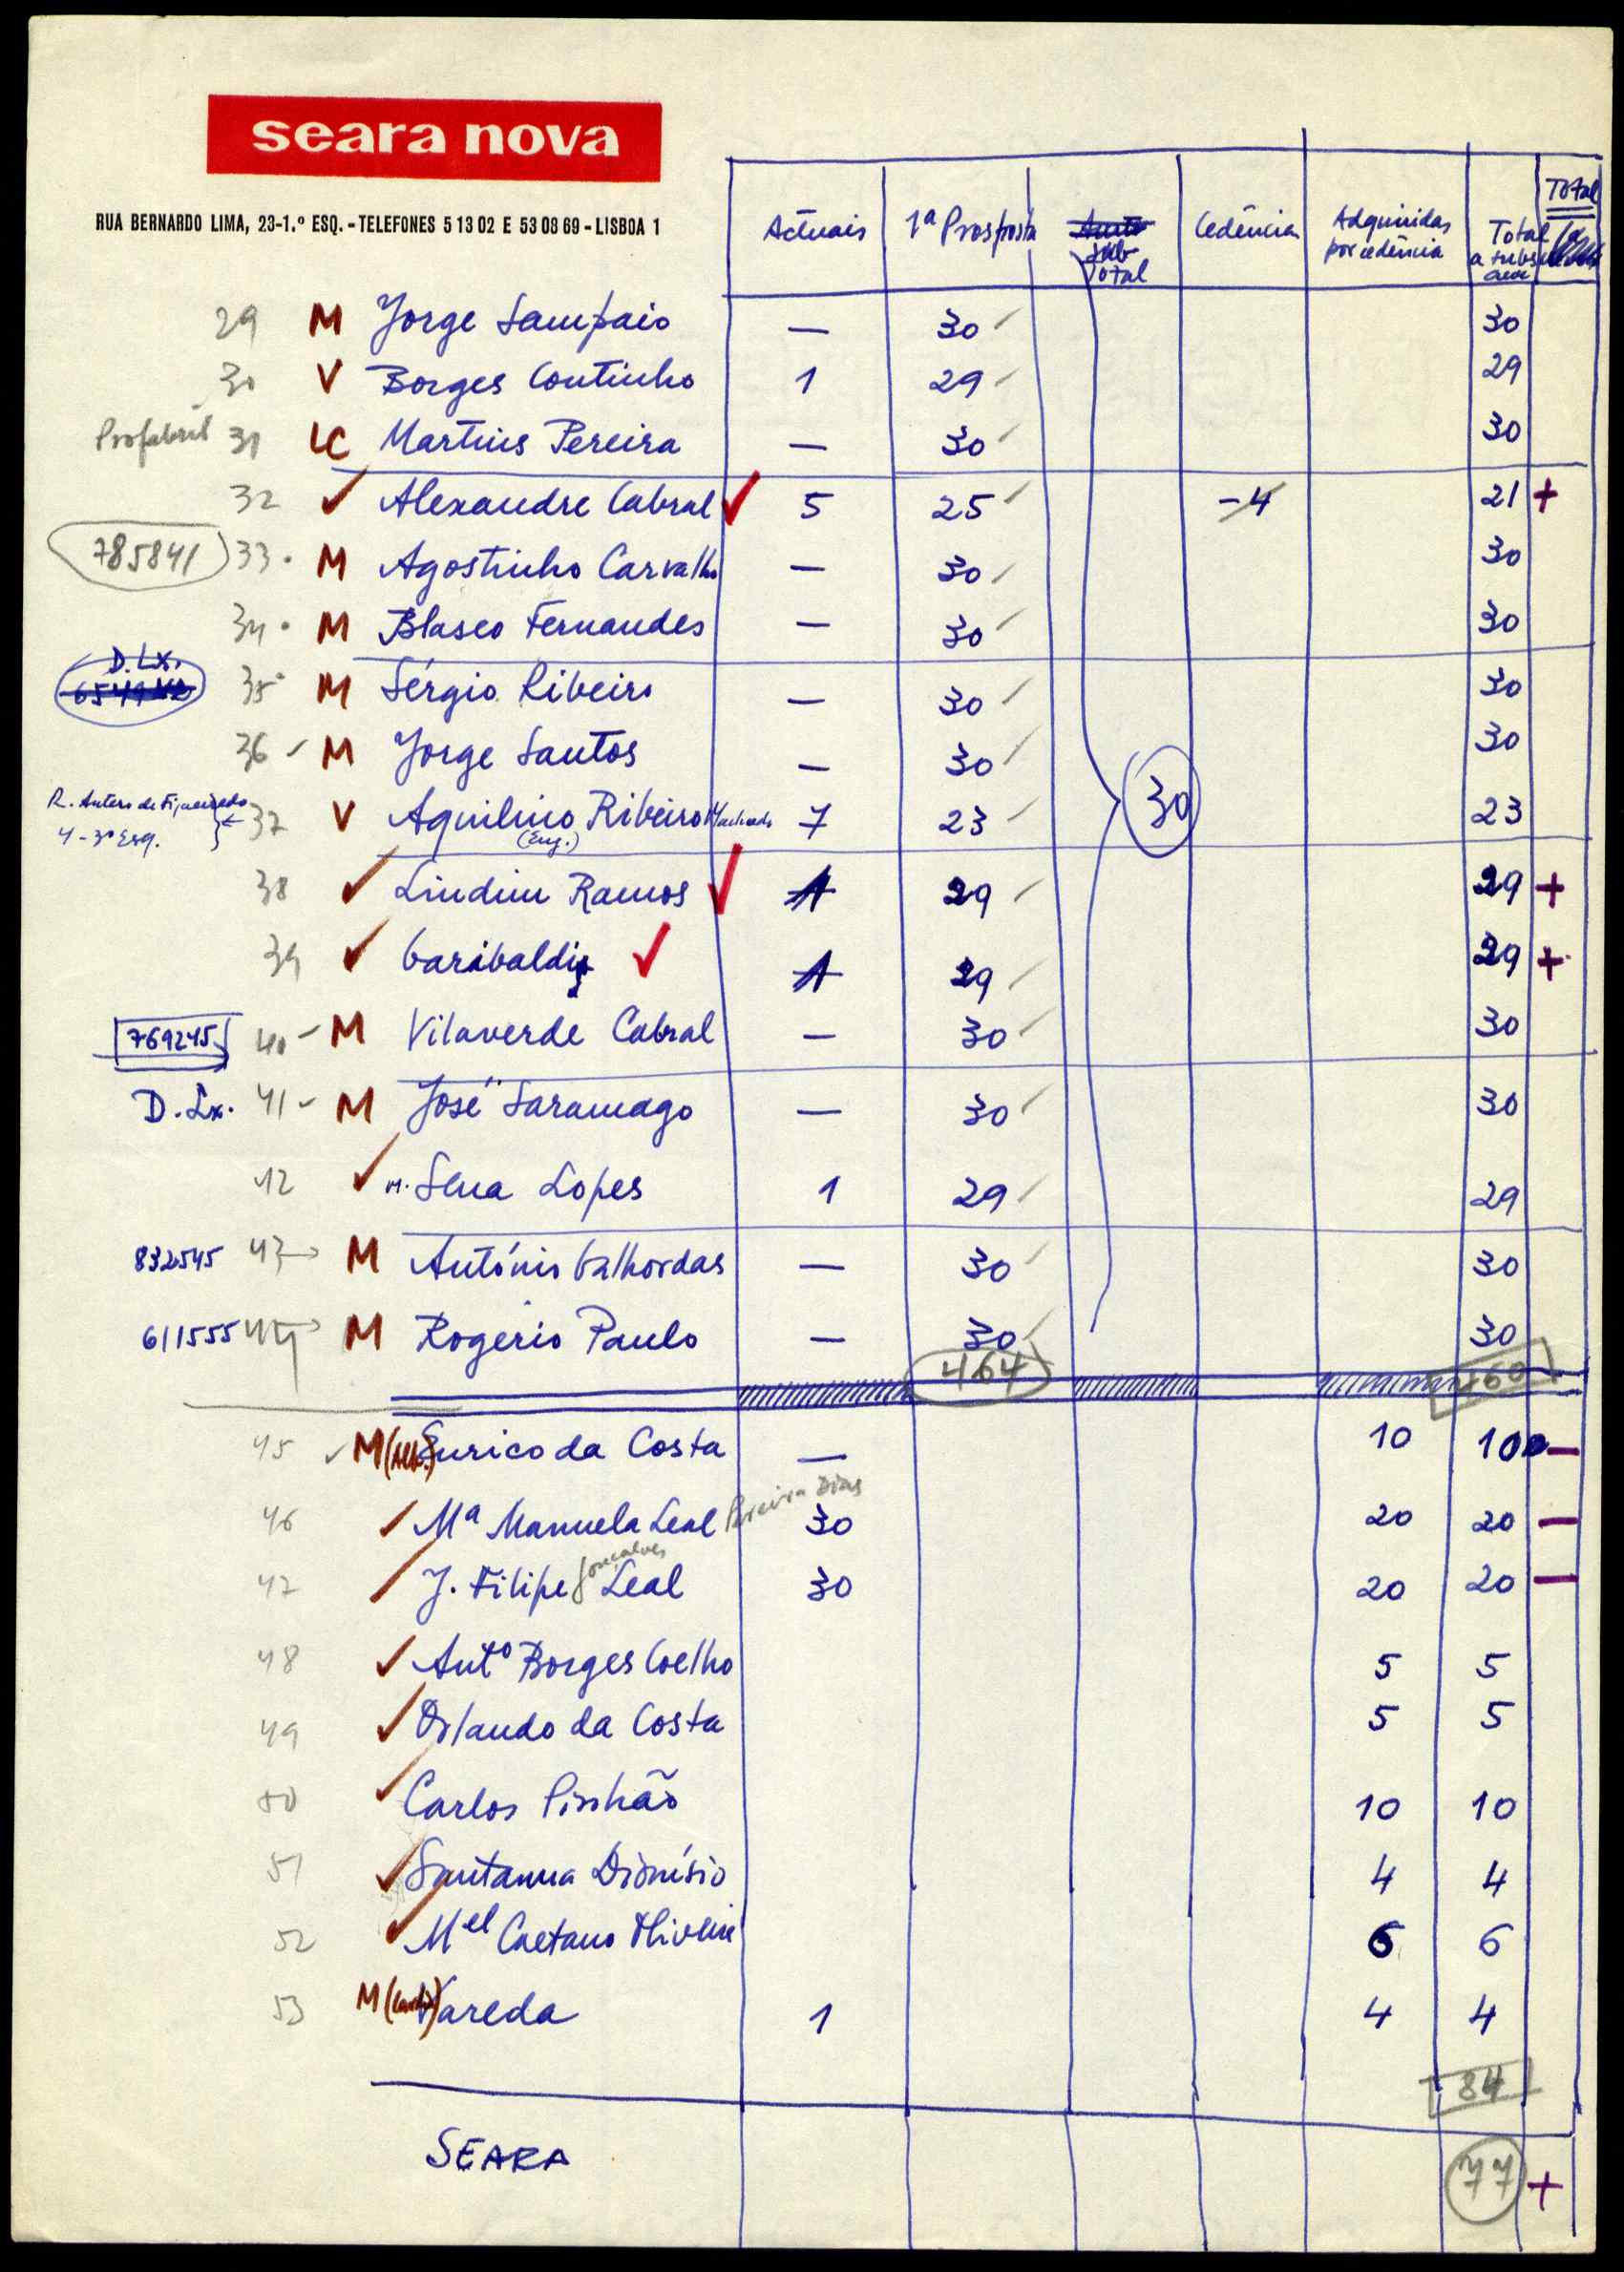 seara nova
RUA BERNARDO LIMA, 23-1.º ESQ. - TELEFONES 5 13 02 E 53 08 69 - LISBOA 1
Actuais 1ª Prosposta Sub Total Cedência Adquiridas por cedência Total a subs Total
29 M Jorge Sampaio — 30 30
30 V Borges Coutinho 1 29 29
Profabril 31 LC Martins Pereira — 30 30
32 ✓ Alexandre Cabral ✓ 5 25 -4 21 +
785841 33 · M Agostinho Carvalho — 30 30
34 · M Blasco Fernandes — 30 30
D. Lx. 35 · M Sérgio Ribeiro — 30 30
36 - M Jorge Santos — 30 30
R. Antero de Figueiredo 4-3º Esq. 37 V Aquilino Ribeiro Machado (Eng.) 7 23 30 23
38 ✓ Lindim Ramos ✓ 1 29 29 +
39 ✓ Garibaldi ✓ 1 29 29 +
769245 40 - M Vilaverde Cabral — 30 30
D. Lx. 41 - M José Saramago — 30 30
42 ✓ M. Sena Lopes 1 29 29
832545 43 → M António Galhordas — 30 30
611555 44 → M Rogerio Paulo — 30 30
464 460
45 ✓ M (Alb.) Eurico da Costa — 10 10 —
46 ✓ Mª Manuela Leal Pereira Dias 30 20 20 —
47 / J. Filipe Gonçalves Leal 30 20 20 —
48 ✓ Antº Borges Coelho 5 5
49 ✓ Orlando da Costa 5 5
50 ✓ Carlos Pinhão 10 10
51 ✓ Santanna Dionísio 4 4
52 ✓ Mel Caetano Oliveira 6 6
53 M Vareda 1 4 4
84
SEARA 77 +